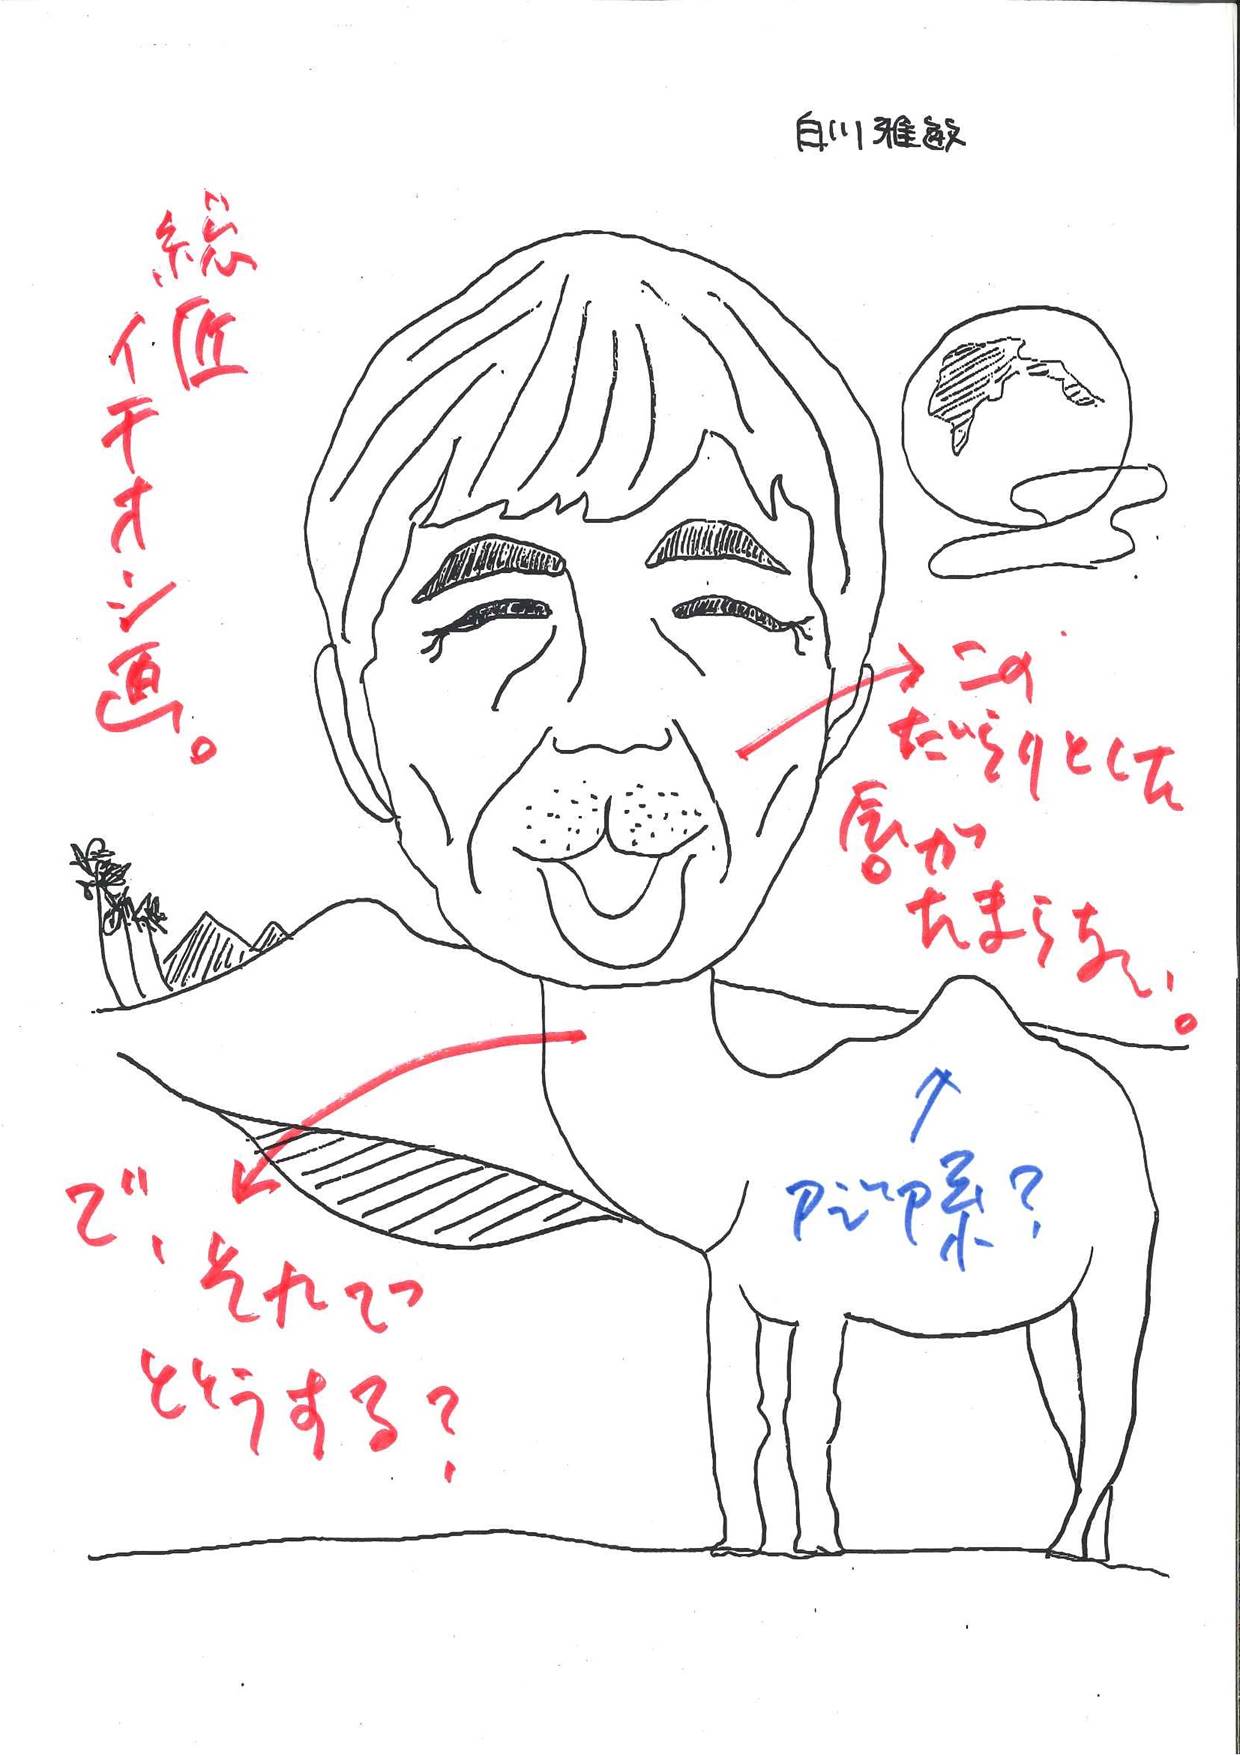 白川雅敏
総匠
イチオシ画。
この
だらりとした
唇が
たまらない。
アジア系?
で、それでっ
どうする?